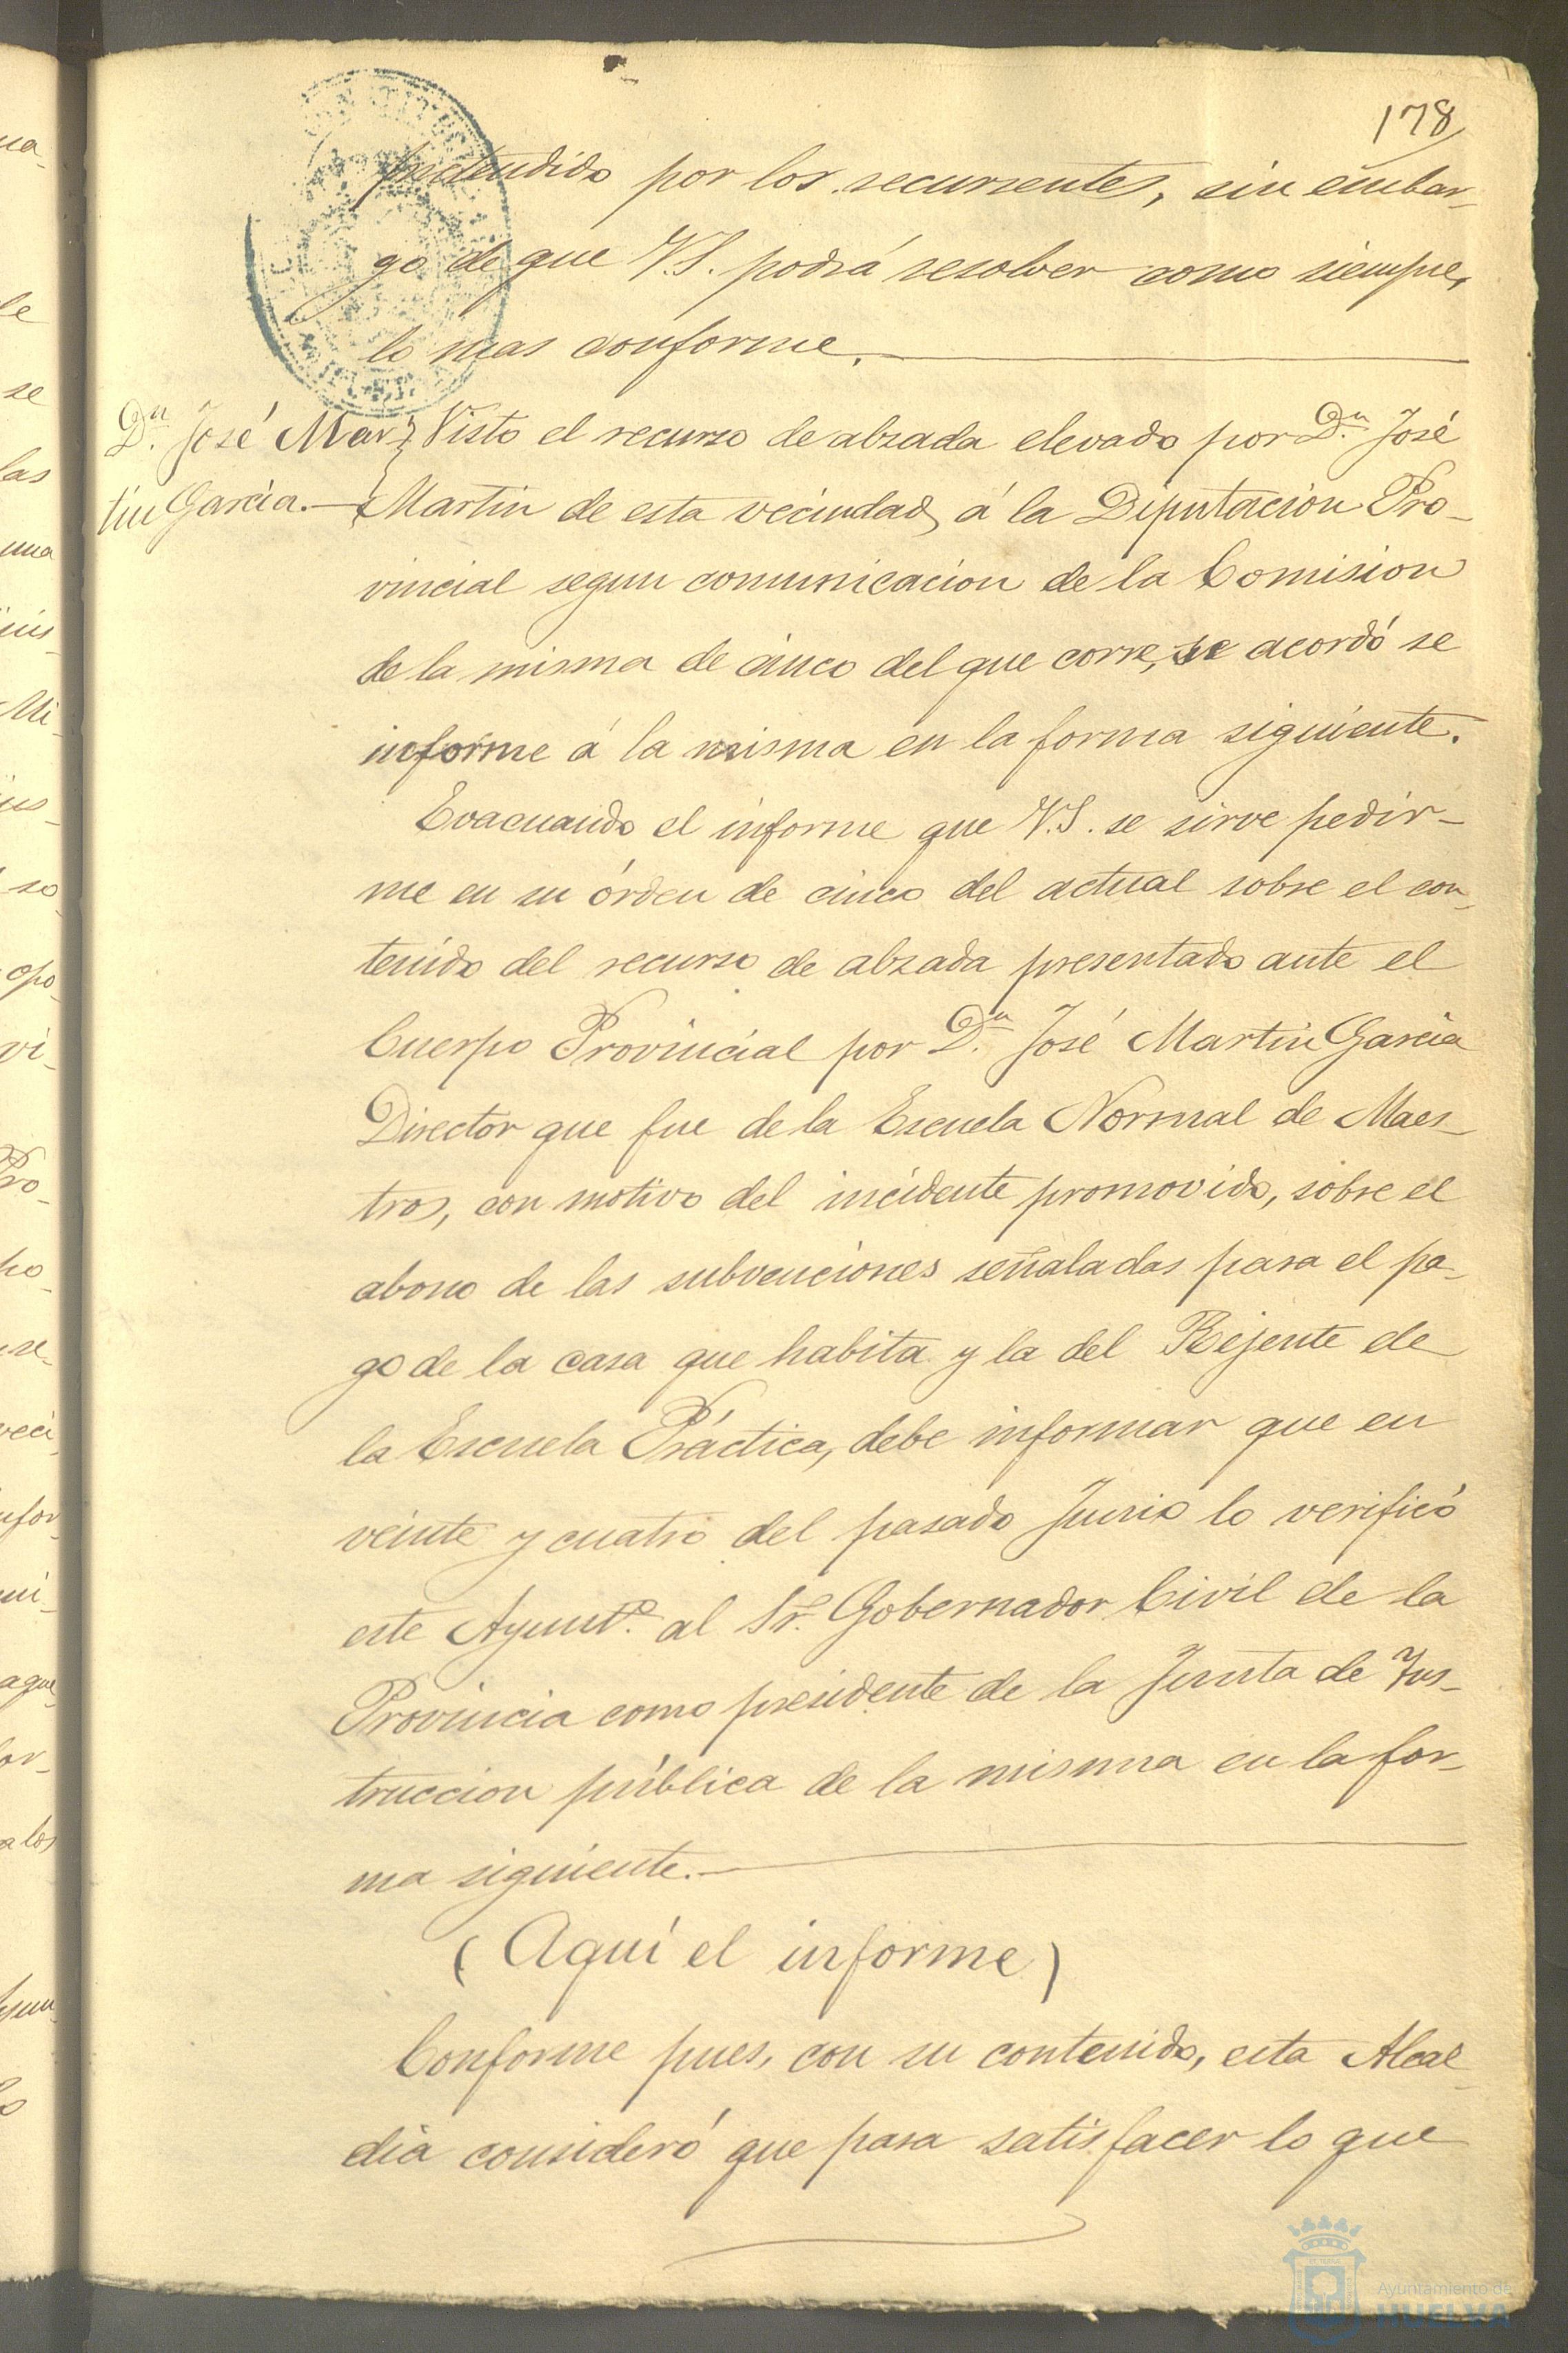 178
pretendido por los recurrentes, sin embar-
go de que V.S. podrá resolver como siempre,
lo mas conforme.
Dn. José Mar-
tin Garcia.
Visto el recurso de alzada elevado por Dn. José
Martin de esta vecindad, á la Diputacion Pro-
vincial segun comunicacion de la Comision
de la misma de cinco del que corre, se acordó se
informe á la misma en la forma siguiente.
Evacuando el informe que V.S. se sirve pedir-
me en su órden de cinco del actual sobre el con-
tenido del recurso de alzada presentado ante el
Cuerpo Provincial por Dn. José Martin Garcia
Director que fue de la Escuela Normal de Maes-
tros, con motivo del incidente promovido, sobre el
abono de las subvenciones señaladas para el pa-
go de la casa que habita y la del Rejente de
la Escuela Práctica, debe informar que en
veinte y cuatro del pasado Junio lo verificó
este Ayuntº. al Sr. Gobernador Civil de la
Provincia como presidente de la Junta de Ins-
truccion pública de la misma en la for-
ma siguiente.
(Aquí el informe)
Conforme pues, con su contenido, esta Alcal-
dia consideró que para satisfacer lo que
Ayuntamiento de
HUELVA